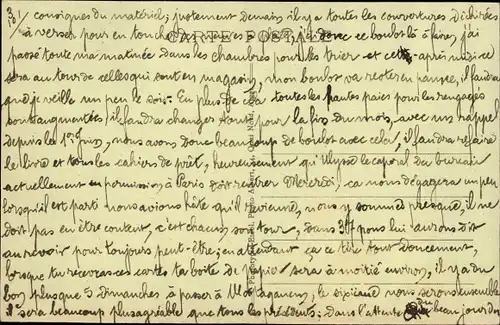 3/ consignes du matériel; justement demain il y a toutes les couvertures déchirées
à verser pour en toucher d'autres, j'ai donc ce boulot là à faire, j'ai
CARTE POSTALE
passé toute ma matinée dans les chambres pour les trier et cette après midi ce
sera au tour de celles qui sont en magasin, mon boulot va rester en panne, il faudra
que je veille un peu le soir. En plus de cela toutes les hautes paies pour les rengagés
sont augmentées, il faudra changer tout pour la fin du mois, avec un rappel
depuis le 1er, nous avons donc beaucoup de boulot avec cela, il faudra refaire
le livre et tous les cahiers de prêt, heureusement qu'Ulysse le caporal du bureau
actuellement en permission à Paris doit rentrer Mercredi, ça nous dégagera un peu
lorsqu'il est parti nous avions hâte qu'il revienne, nous y sommes presque, il ne
doit pas en être content, c'est chacun son tour, dans nous lui aurons dit
au revoir pour toujours peut-être; en attendant ça se tire tout doucement,
lorsque tu recevras ces cartes ta boîte de papier sera à moitié environ, il y a du
bon, plus que 5 dimanches à passer à Mostaganem, le sixième nous serons ensemble
il sera beaucoup plus agréable que tous les précédents; dans l'attente du beau jour de